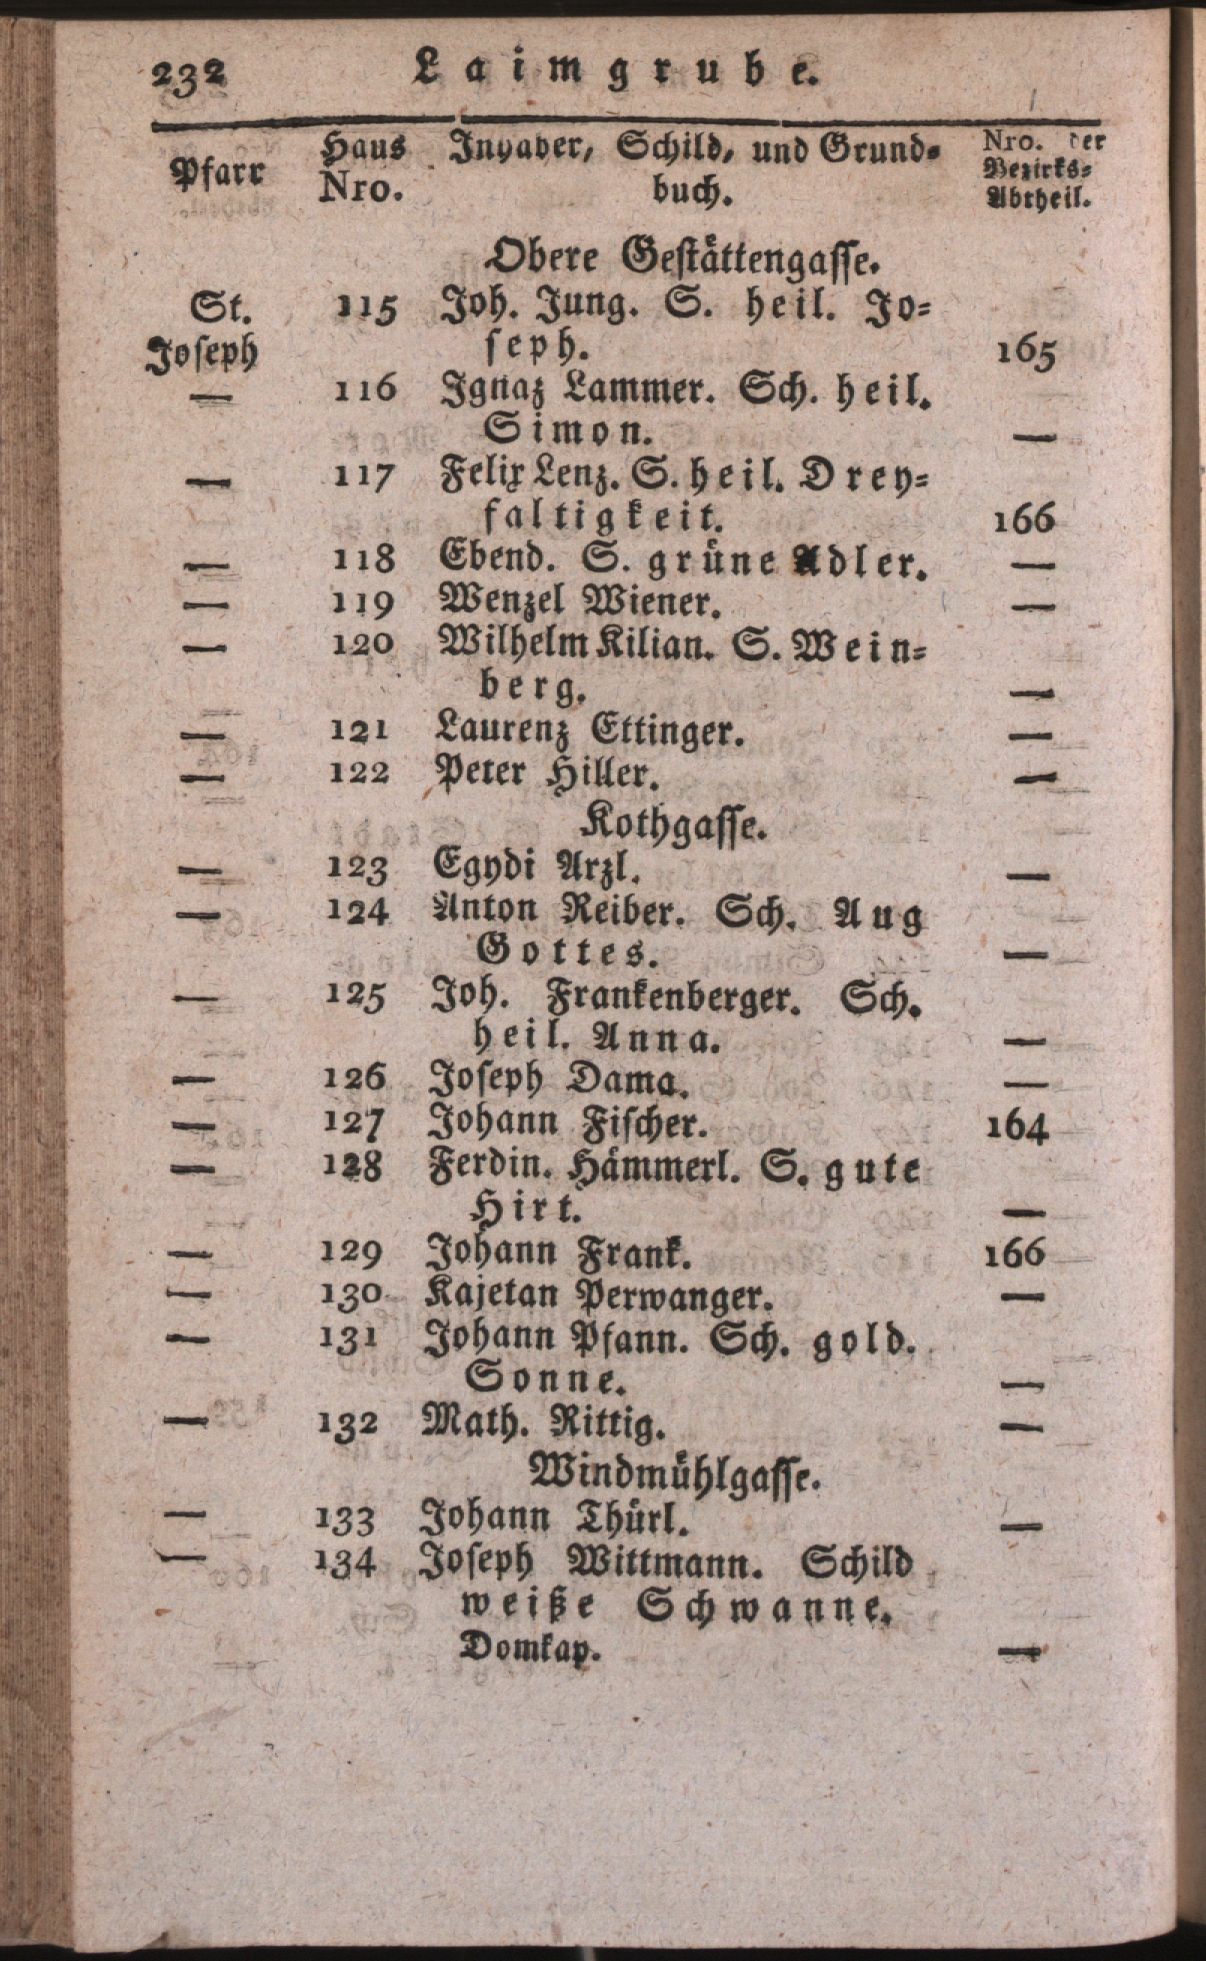 232 Laimgrube.
Pfarr Haus Nro. Innhaber, Schild, und Grund- buch. Nro. der Bezirks- Abtheil.
Obere Gestättengasse.
St. 115 Joh. Jung. S. heil. Jo-
Joseph seph. 165
— 116 Ignaz Lammer. Sch. heil.
Simon. —
— 117 Felix Lenz. S. heil. Drey-
faltigkeit. 166
— 118 Ebend. S. grüne Adler. —
— 119 Wenzel Wiener. —
— 120 Wilhelm Kilian. S. Wein-
berg. —
— 121 Laurenz Ettinger. —
— 122 Peter Hiller. —
Kothgasse.
— 123 Egydi Arzl. —
— 124 Anton Reiber. Sch. Aug
Gottes. —
— 125 Joh. Frankenberger. Sch.
heil. Anna. —
— 126 Joseph Dama. —
— 127 Johann Fischer. 164
— 128 Ferdin. Hämmerl. S. gute
Hirt. —
— 129 Johann Frank. 166
— 130 Kajetan Perwanger. —
— 131 Johann Pfann. Sch. gold.
Sonne. —
— 132 Math. Rittig. —
Windmühlgasse.
— 133 Johann Thürl. —
— 134 Joseph Wittmann. Schild
weiße Schwanne.
Domkap. —